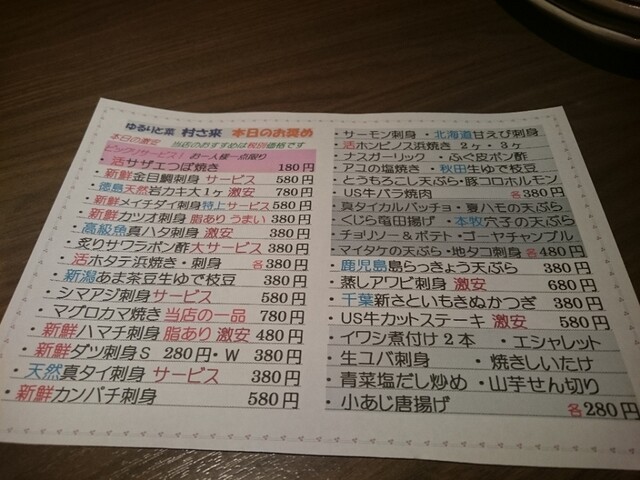 ゆるりと菜 村さ来 本日のお奨め
本日の激安 当店のおすすめは税別価格です
ビックリサービス! お一人様一点限り
・活サザエつぼ焼き 180円
・新鮮金目鯛刺身 サービス 580円
・徳島天然岩カキ大1ヶ 激安 780円
・新鮮メイチダイ刺身特上サービス580円
・新鮮カツオ刺身 脂あり うまい 380円
・高級魚真ハタ刺身 激安 380円
・炙りサワラポン酢大サービス 380円
・活ホタテ浜焼き・刺身 各380円
・新潟あま茶豆生ゆで枝豆 380円
・シマアジ刺身サービス 580円
・マグロカマ焼き当店の一品 780円
・新鮮ハマチ刺身 脂あり 激安 480円
・新鮮ダツ刺身S 280円・W 380円
・天然真タイ刺身 サービス 380円
・新鮮カンパチ刺身 580円
・サーモン刺身 ・北海道甘えび刺身
・活ホンビノス浜焼き 2ヶ・3ヶ
・ナスガーリック ・ふぐ皮ポン酢
・アコの塩焼き ・秋田生ゆで枝豆
・とうもろこし天ぷら・豚コロホルモン
・US牛バラ焼肉 各380円
・真タイカルパッチョ・夏ハモの天ぷら
・くじら竜田揚げ ・本牧穴子の天ぷら
・チョリソー&ポテト・ゴーヤチャンプル
・マイタケの天ぷら・地タコ刺身 各480円
・鹿児島島らっきょう天ぷら 380円
・蒸しアワビ刺身 激安 680円
・千葉新さといもきぬかつぎ 380円
・US牛カットステーキ 激安 580円
・イワシ煮付け2本 ・エシャレット
・生ユバ刺身 ・焼きしいたけ
・青菜塩だし炒め ・山芋せん切り
・小あじ唐揚げ 各280円